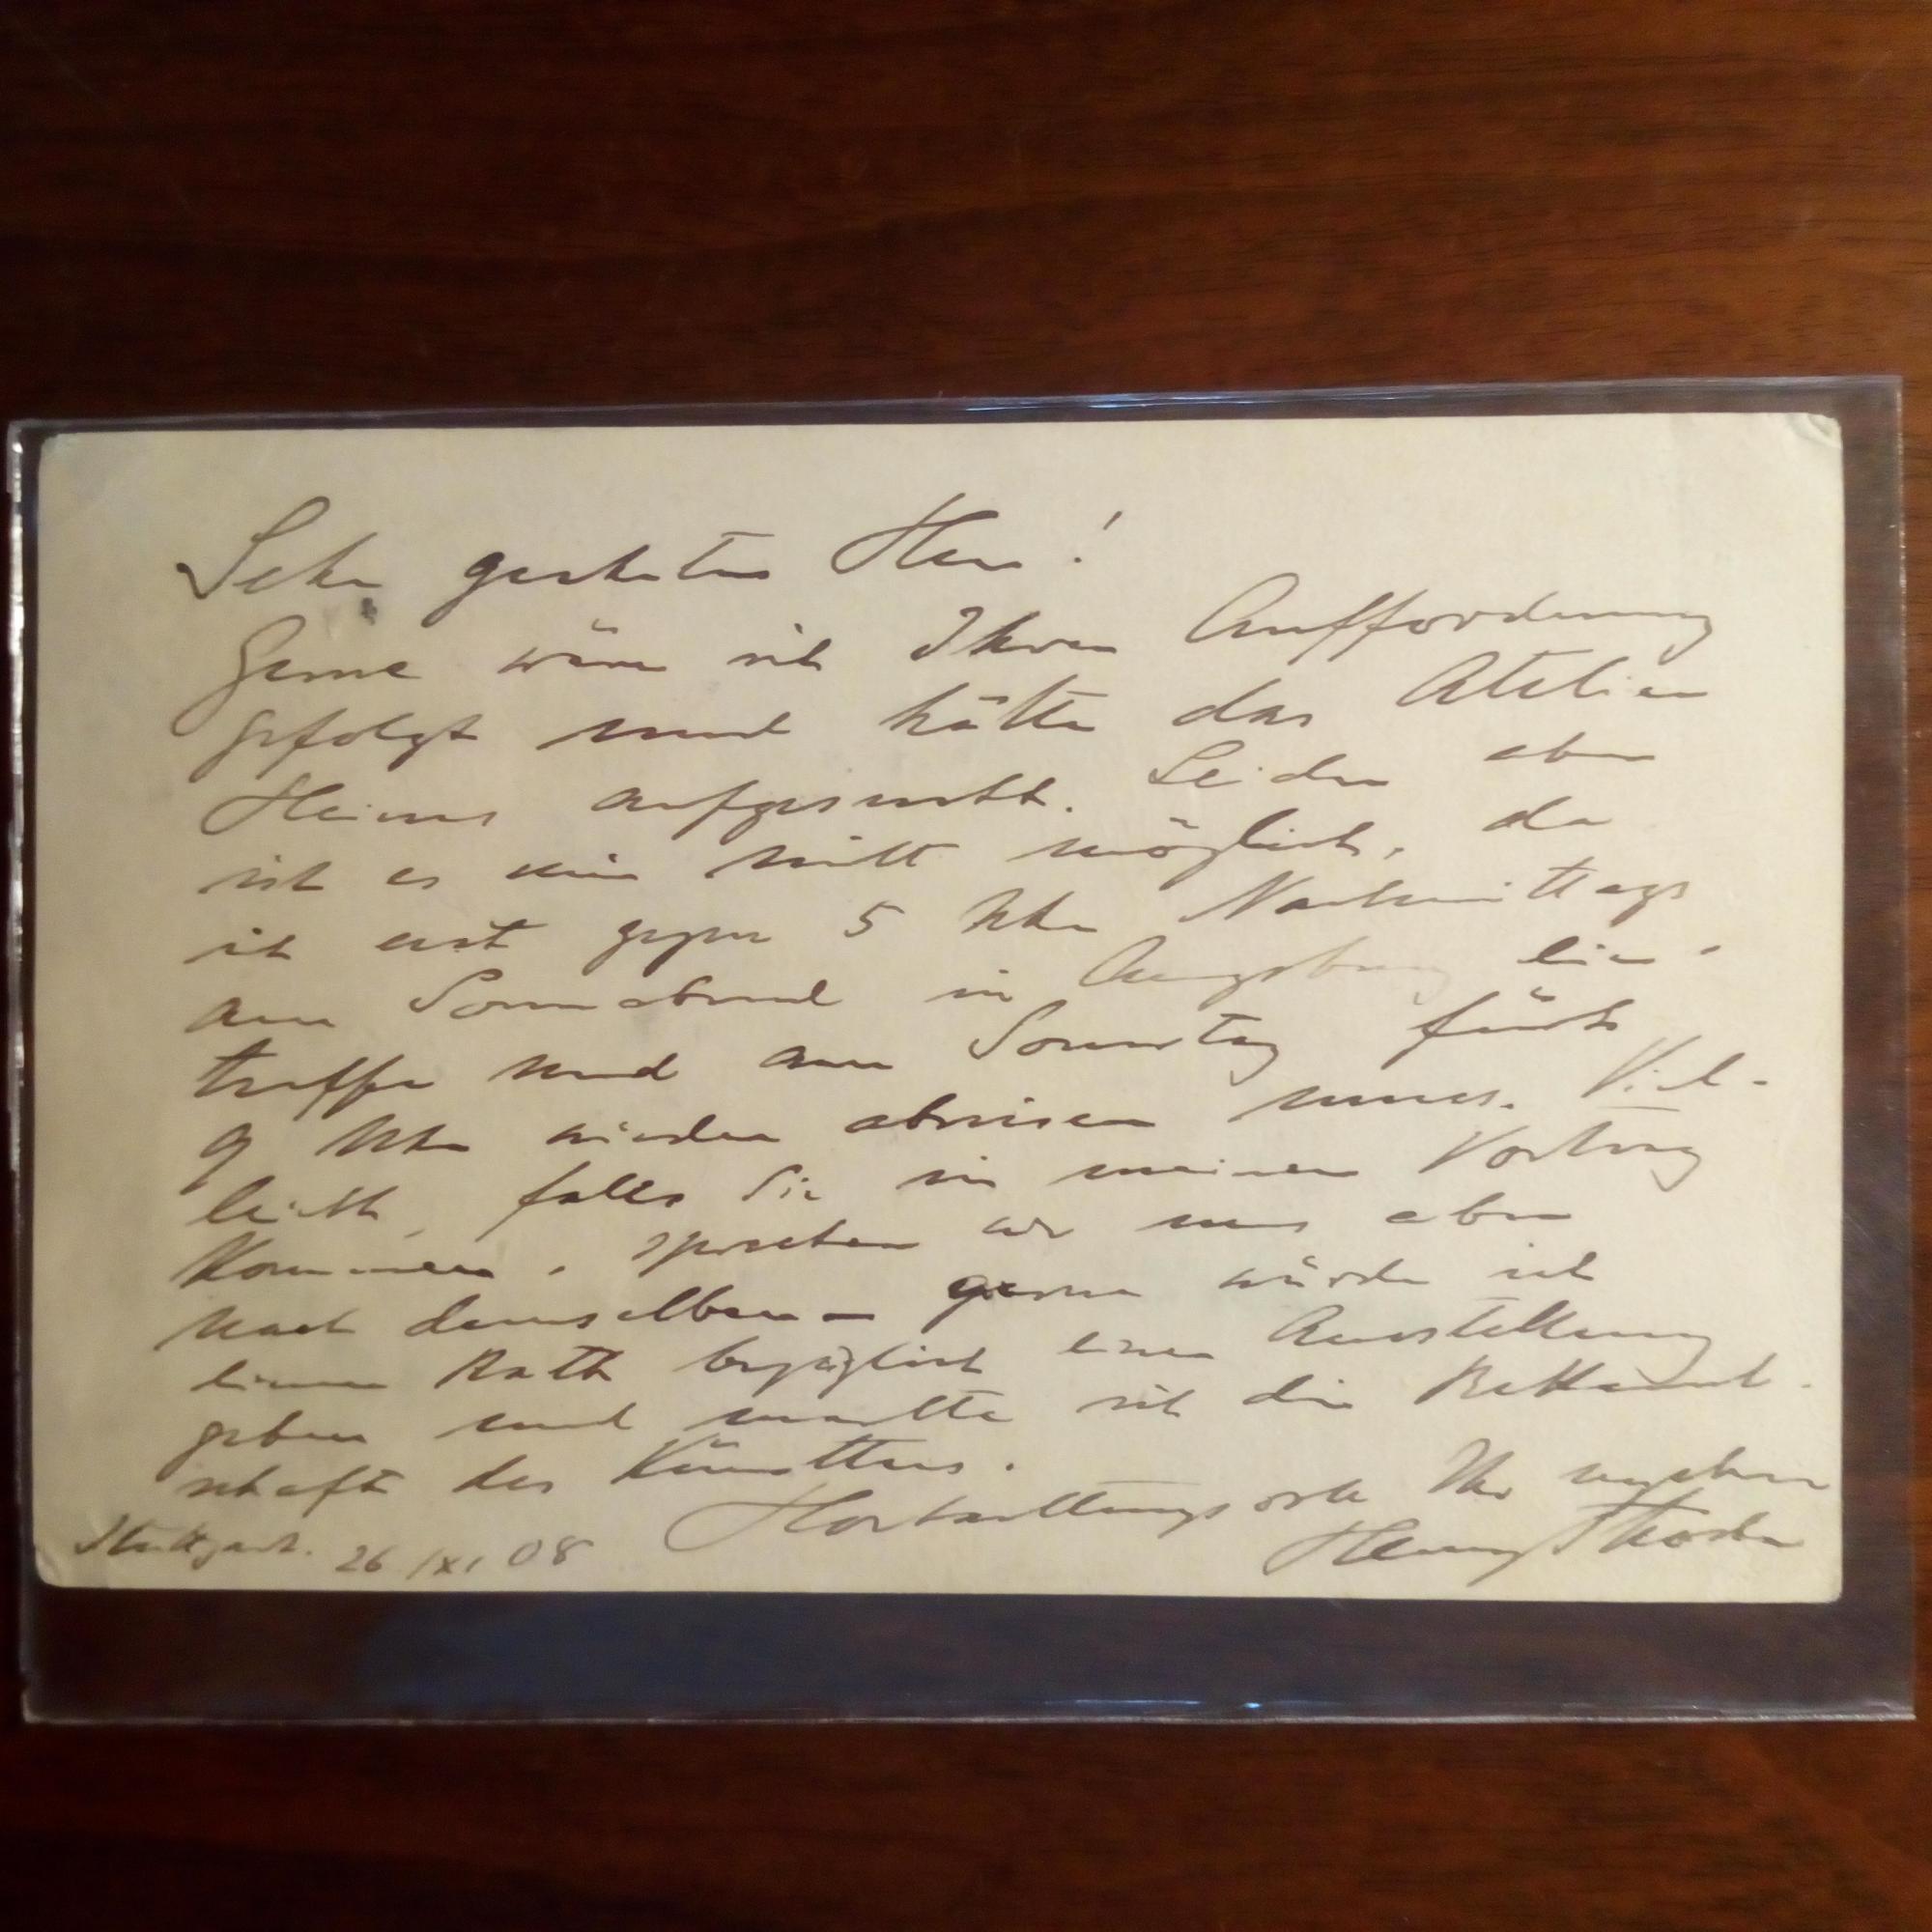 Sehr geehrter Herr!
Gerne wäre ich Ihrer Aufforderung
gefolgt und hätte das Atelier
Heims aufgesucht. Leider aber
ist es mir nicht möglich, da
ich erst gegen 5 Uhr Nachmittags
am Sonnabend in Augsburg ein-
treffe und am Sonntag früh
9 Uhr wieder abreisen muss. Viel-
leicht, falls Sie in meinen Vortrag
kommen, sprechen wir uns aber
nach demselben – gerne würde ich
einen Rath bezüglich einer Ausstellung
geben und machte ich die Bekannt-
schaft des Künstlers.
Hochachtungsvoll Ihr ergebener
Stuttgart. 26/XI 08 Henry Thode